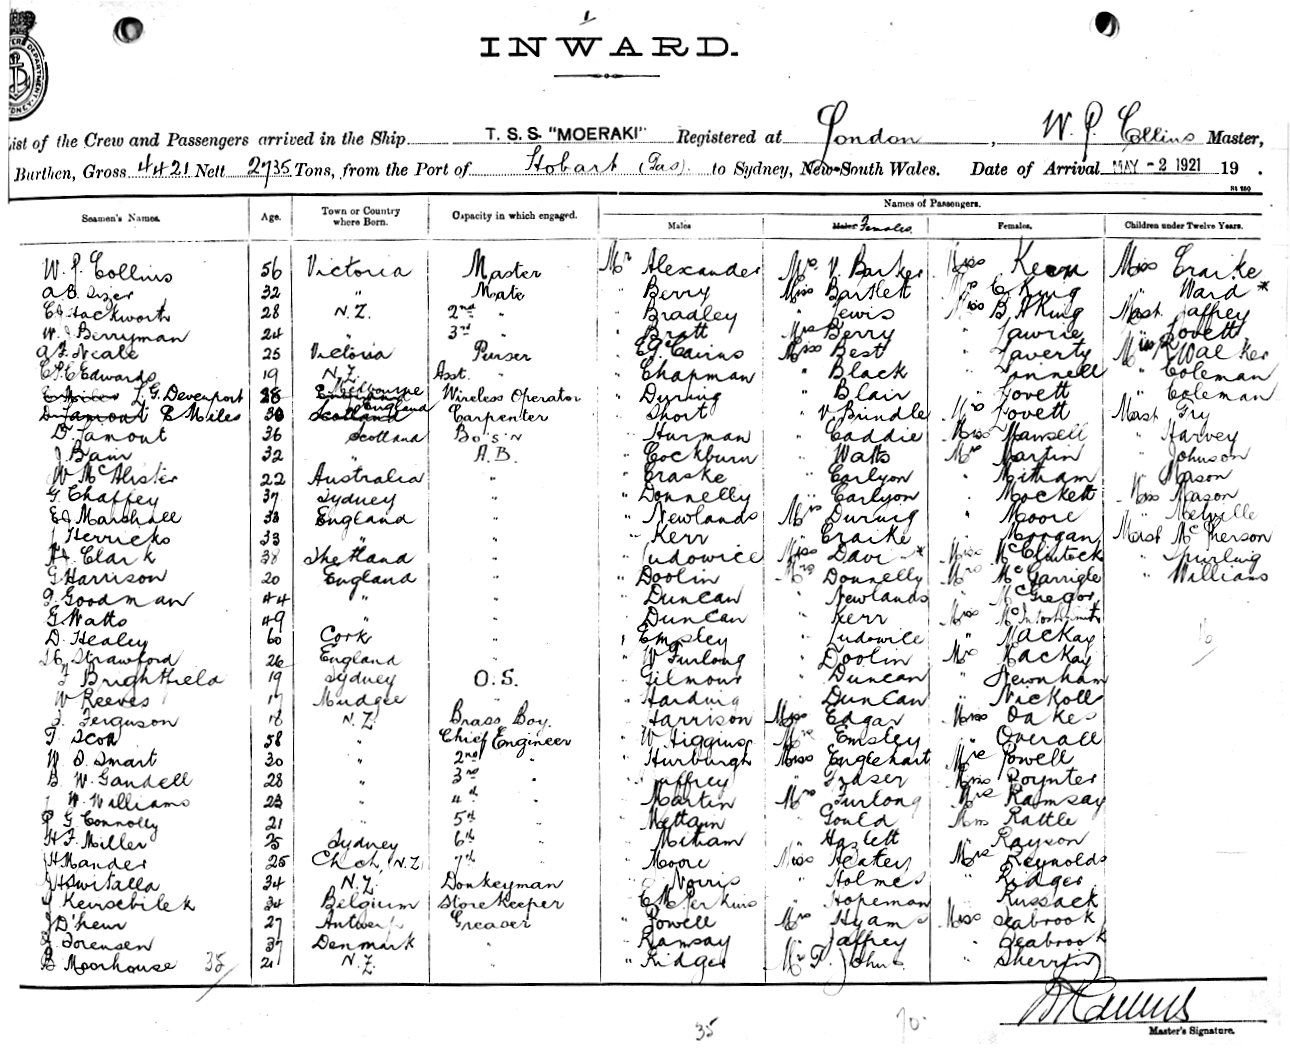 1
INWARD.
List of the Crew and Passengers arrived in the Ship T. S. S. "MOERAKI" Registered at London, W. P. Collins Master,
Burthen, Gross 4421 Nett 2735 Tons, from the Port of Hobart (Tas) to Sydney, New South Wales. Date of Arrival MAY - 2 1921 19 .
St 180
Seamen's Names. Age. Town or Country where Born. Capacity in which engaged. Names of Passengers.
Males Males Females. Females. Children under Twelve Years.
W. P. Collins 56 Victoria Master Mr Alexander Mrs V. Barker Miss Keen Miss Craike
32 " Mate " Berry Miss Bartlett Mrs C King " Ward *
Hackworth 28 N.Z. 2nd " " Bradley " Lewis Miss B. A King Mast Jaffrey
W. J Berryman 24 " 3rd " " Bratt Mrs Berry " Lawrie " Lovett
A. F. Neale 25 Victoria Purser " E G Cairns Miss Best " Laverty Miss Walker
Edwards 19 N.Z. Asst. " " Chapman " Black " " Coleman
E Miles L. G. Devenport 28 England Melbourne Wireless Operator " During " Blair " Lovett " Coleman
D Lamont E Miles 30 Scotland England Carpenter " Short " V. Brindle Mrs Lovett Mast Fry
D. Lamont 36 Scotland Bo's'n " Hurman " Caddie Miss Mansell " Harvey
J Bain 32 " A.B. " Cockburn " Watts Mrs Martin " Johnson
W McAlister 22 Australia " " Craske " Carlyon " Mitham " Mason
G. Chaffey 37 Sydney " " Donnelly " Carlyon " Mockett Miss Mason
Marshall 33 England " " Newlands Mrs During " Moore " Melville
J Herricks 33 " " " Kerr " Craike " Morgan Mast McPherson
Clark 38 Shetland " " Ludowice Miss Davi * Miss McClintock " Spurling
G Harrison 20 England " " Doolin Mrs Donnelly Mrs McGarrigle " Williams
Goodman 44 " " " Duncan " Newlands " McGregor
G Watts 49 " " " Duncan " Kerr Miss
D. Healey 60 Cork " " Emsley " Ludowice " Mackay 16
Strawford 26 England " " W Furlong " Doolin Mrs Mackay
F Brightfield 19 Sydney O.S. " Gilmour " Duncan " Newnham
W Reeves 17 Mudgee " " Harding " Duncan " Nickoll
J. Ferguson 18 N.Z. Brass Boy. " Harrison Miss Edgar Miss Oakes
T. Scott 58 " Chief Engineer " W Higgins Mrs Emsley " Overall
W. D. Smart 30 " 2nd " " Hurburgh Miss Englehart Mrs Powell
B. W. Gandell 28 " 3rd " " Jaffrey " Fraser Miss Poynter
J W. Williams 23 " 4th " " Martin Mrs Furlong Mrs Ramsay
P G Connolly 21 " 5th " " " Gould Miss Rattle
H. F. Miller 25 Sydney 6th " " Mitham " Haslett " Rayson
H Mander 25 Ch.ch, N.Z. 7th " " Moore Miss Heatey Mrs Reynolds
34 N.Z. Donkeyman " Norris " Holmes " Ridges
34 Belgium Storekeeper " C M Perkins " Hopeman " Russack
J D'heur 27 Antwerp Greaser " Powell Mrs Hyams Miss Seabrook
J. Sorensen 37 Denmark " " Ramsay " Jaffrey " Seabrook
B Moorhouse 35 21 N.Z. " " Ridges Mr F. Johns " Sherrin
35 70
Master's Signature.